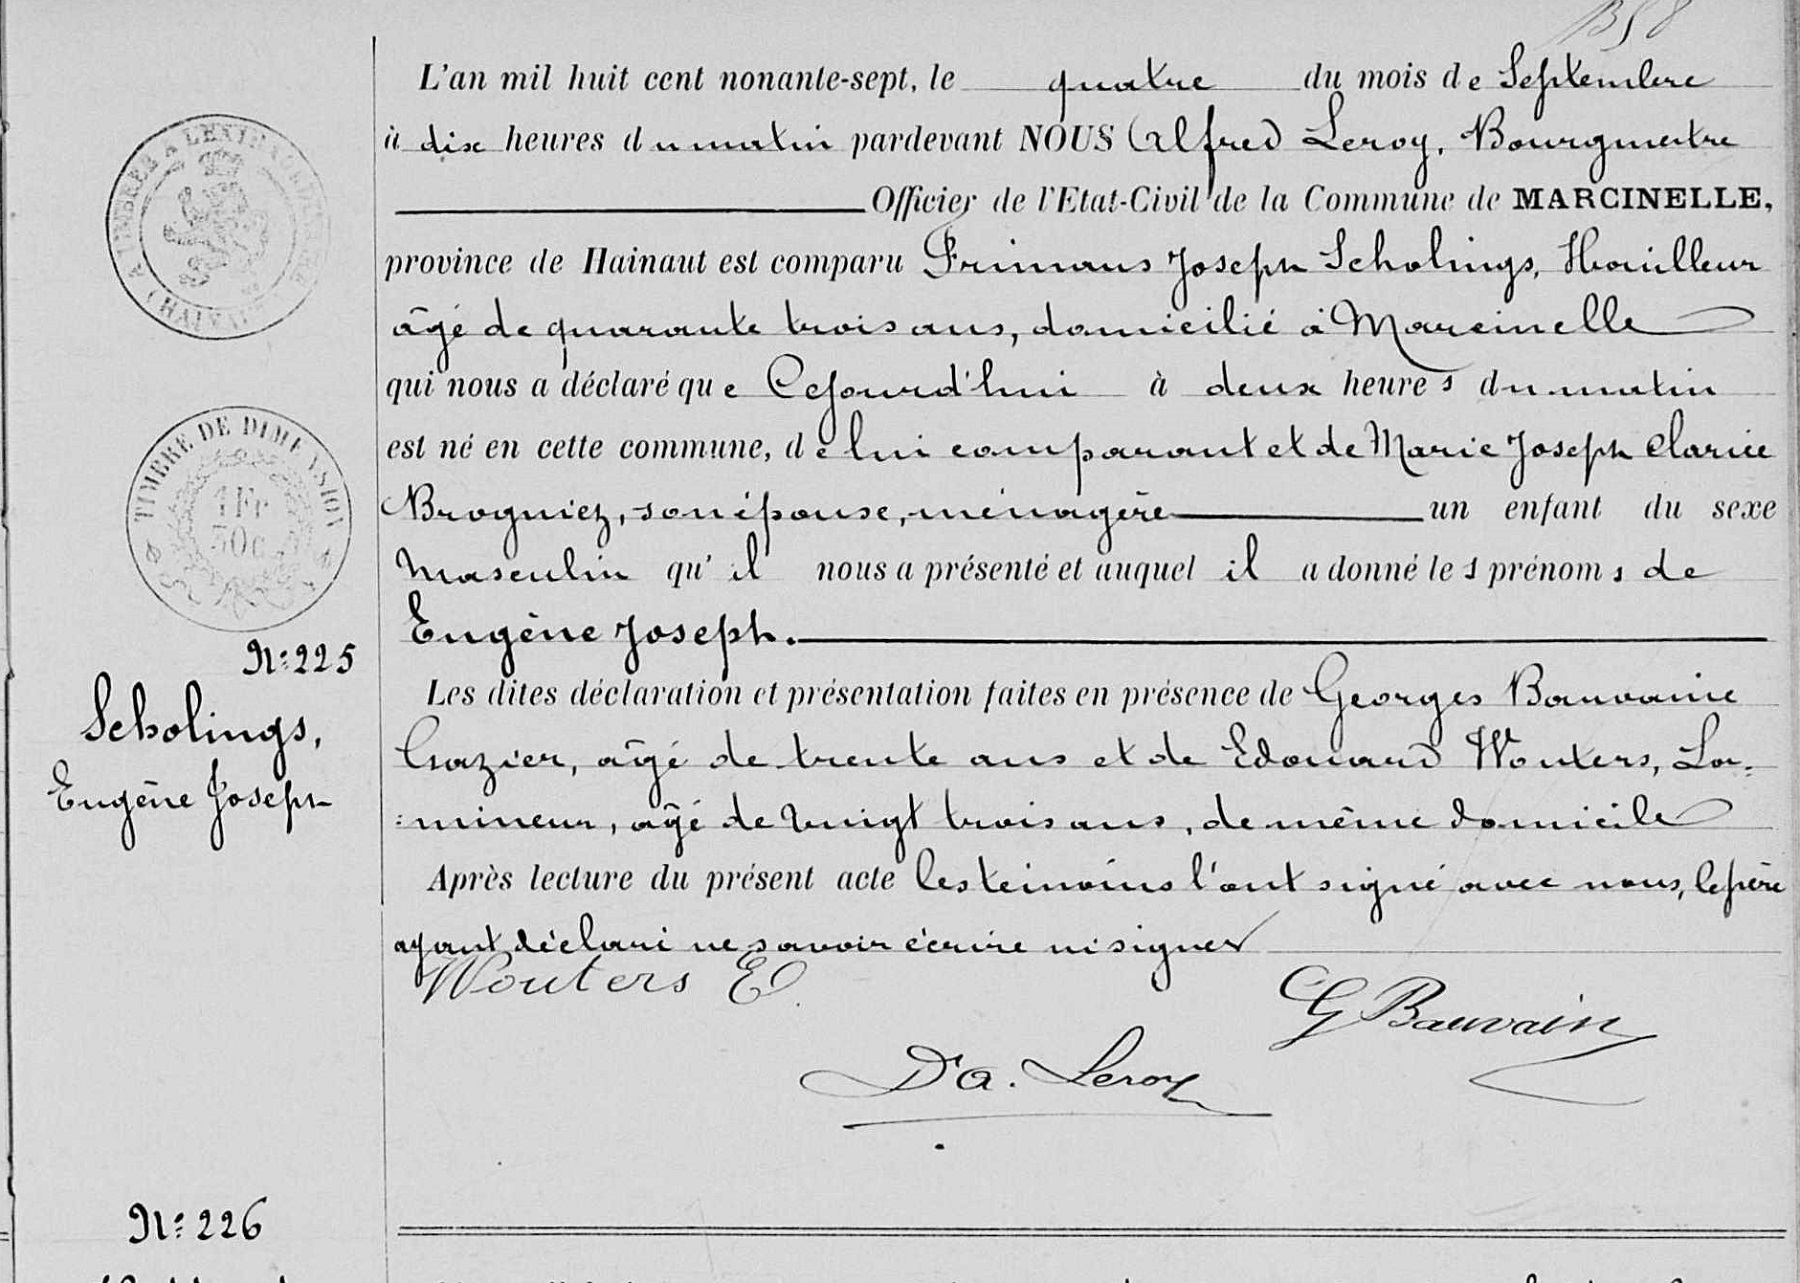 B58
L'an mil huit cent nonante-sept, le quatre du mois de Septembre
à dix heures du matin pardevant NOUS Alfred Leroy, Bourgmestre
Officier de l'Etat-Civil de la Commune de MARCINELLE,
province de Hainaut est comparu Frimans Joseph Scholings, Houilleur
âgé de quarante trois ans, domicilié à Marcinelle
qui nous a déclaré que Cejourd'hui à deux heures du matin
est né en cette commune, de lui comparant et de Marie Joseph Clarice
Brogniez, son épouse, ménagère un enfant du sexe
Masculin qu'il nous a présenté et auquel il a donné les prénoms de
Eugène Joseph.
Les dites déclaration et présentation faites en présence de Georges Bauvaine
Gazier, âgé de trente ans et de Edouard Wouters, La=
=mineur, âgé de vingt trois ans, de même domicile
Après lecture du présent acte les témoins l'ont signé avec nous, le père
ayant déclaré ne savoir écrire ni signer
Wouters E
G Bauvain
Dr A. Leroy
TIMBRE DE DIMENSION
1 Fr
30c
N: 225
Scholings,
Eugène Joseph
N: 226